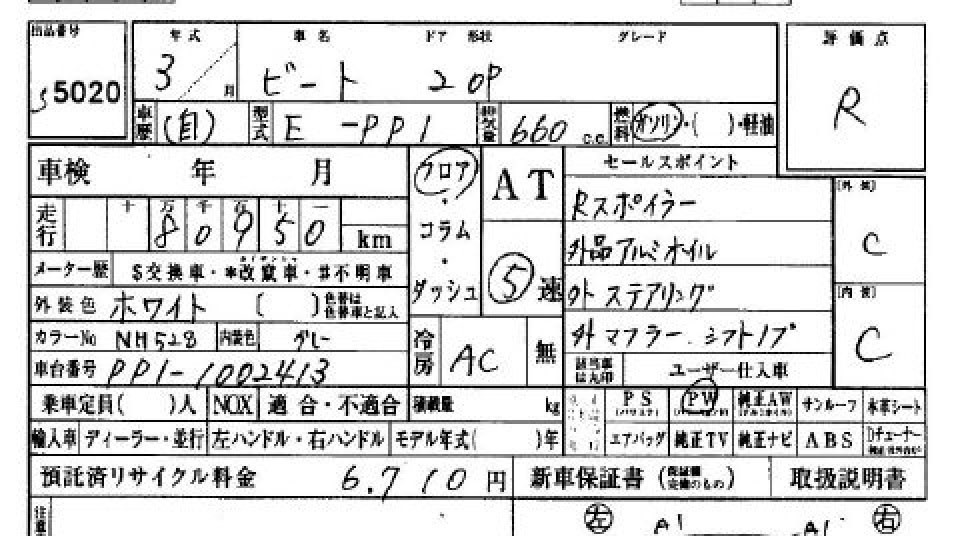 出品番号 年式 車名 ドア 形状 グレード 評価点
55020 3 月 ビート 2 OP R
車歴 (自) 型式 E -PP1 排気量 660 c.c. 燃料 ガソリン・( )・軽油
車検 年 月 フロア・コラム・ダッシュ AT セールスポイント
Rスポイラー [外装]
走行 十 万 千 百 十 一 80950 km C
外品アルミホイル
メーター歴 $交換車・*改竄車・#不明車 ⑤速 外ステアリング [内装]
外装色 ホワイト ( ) 色替は色替車と記入 C
カラーNo NH528 内装色 グレー 冷房 AC 無 外マフラー.シフトノブ
車台番号 PP1-1002413 該当車は丸印 ユーザー仕入車
乗車定員( )人 NOX 適合・不適合 積載量 kg PS PW 純正AW サンルーフ 本革シート
輸入車 ディーラー・並行 左ハンドル・右ハンドル モデル年式( )年 エアバッグ 純正TV 純正ナビ ABS Dチューナー
預託済リサイクル料金 6,710円 新車保証書 (保証継完備のもの) 取扱説明書
注意 左 A1 A1 右